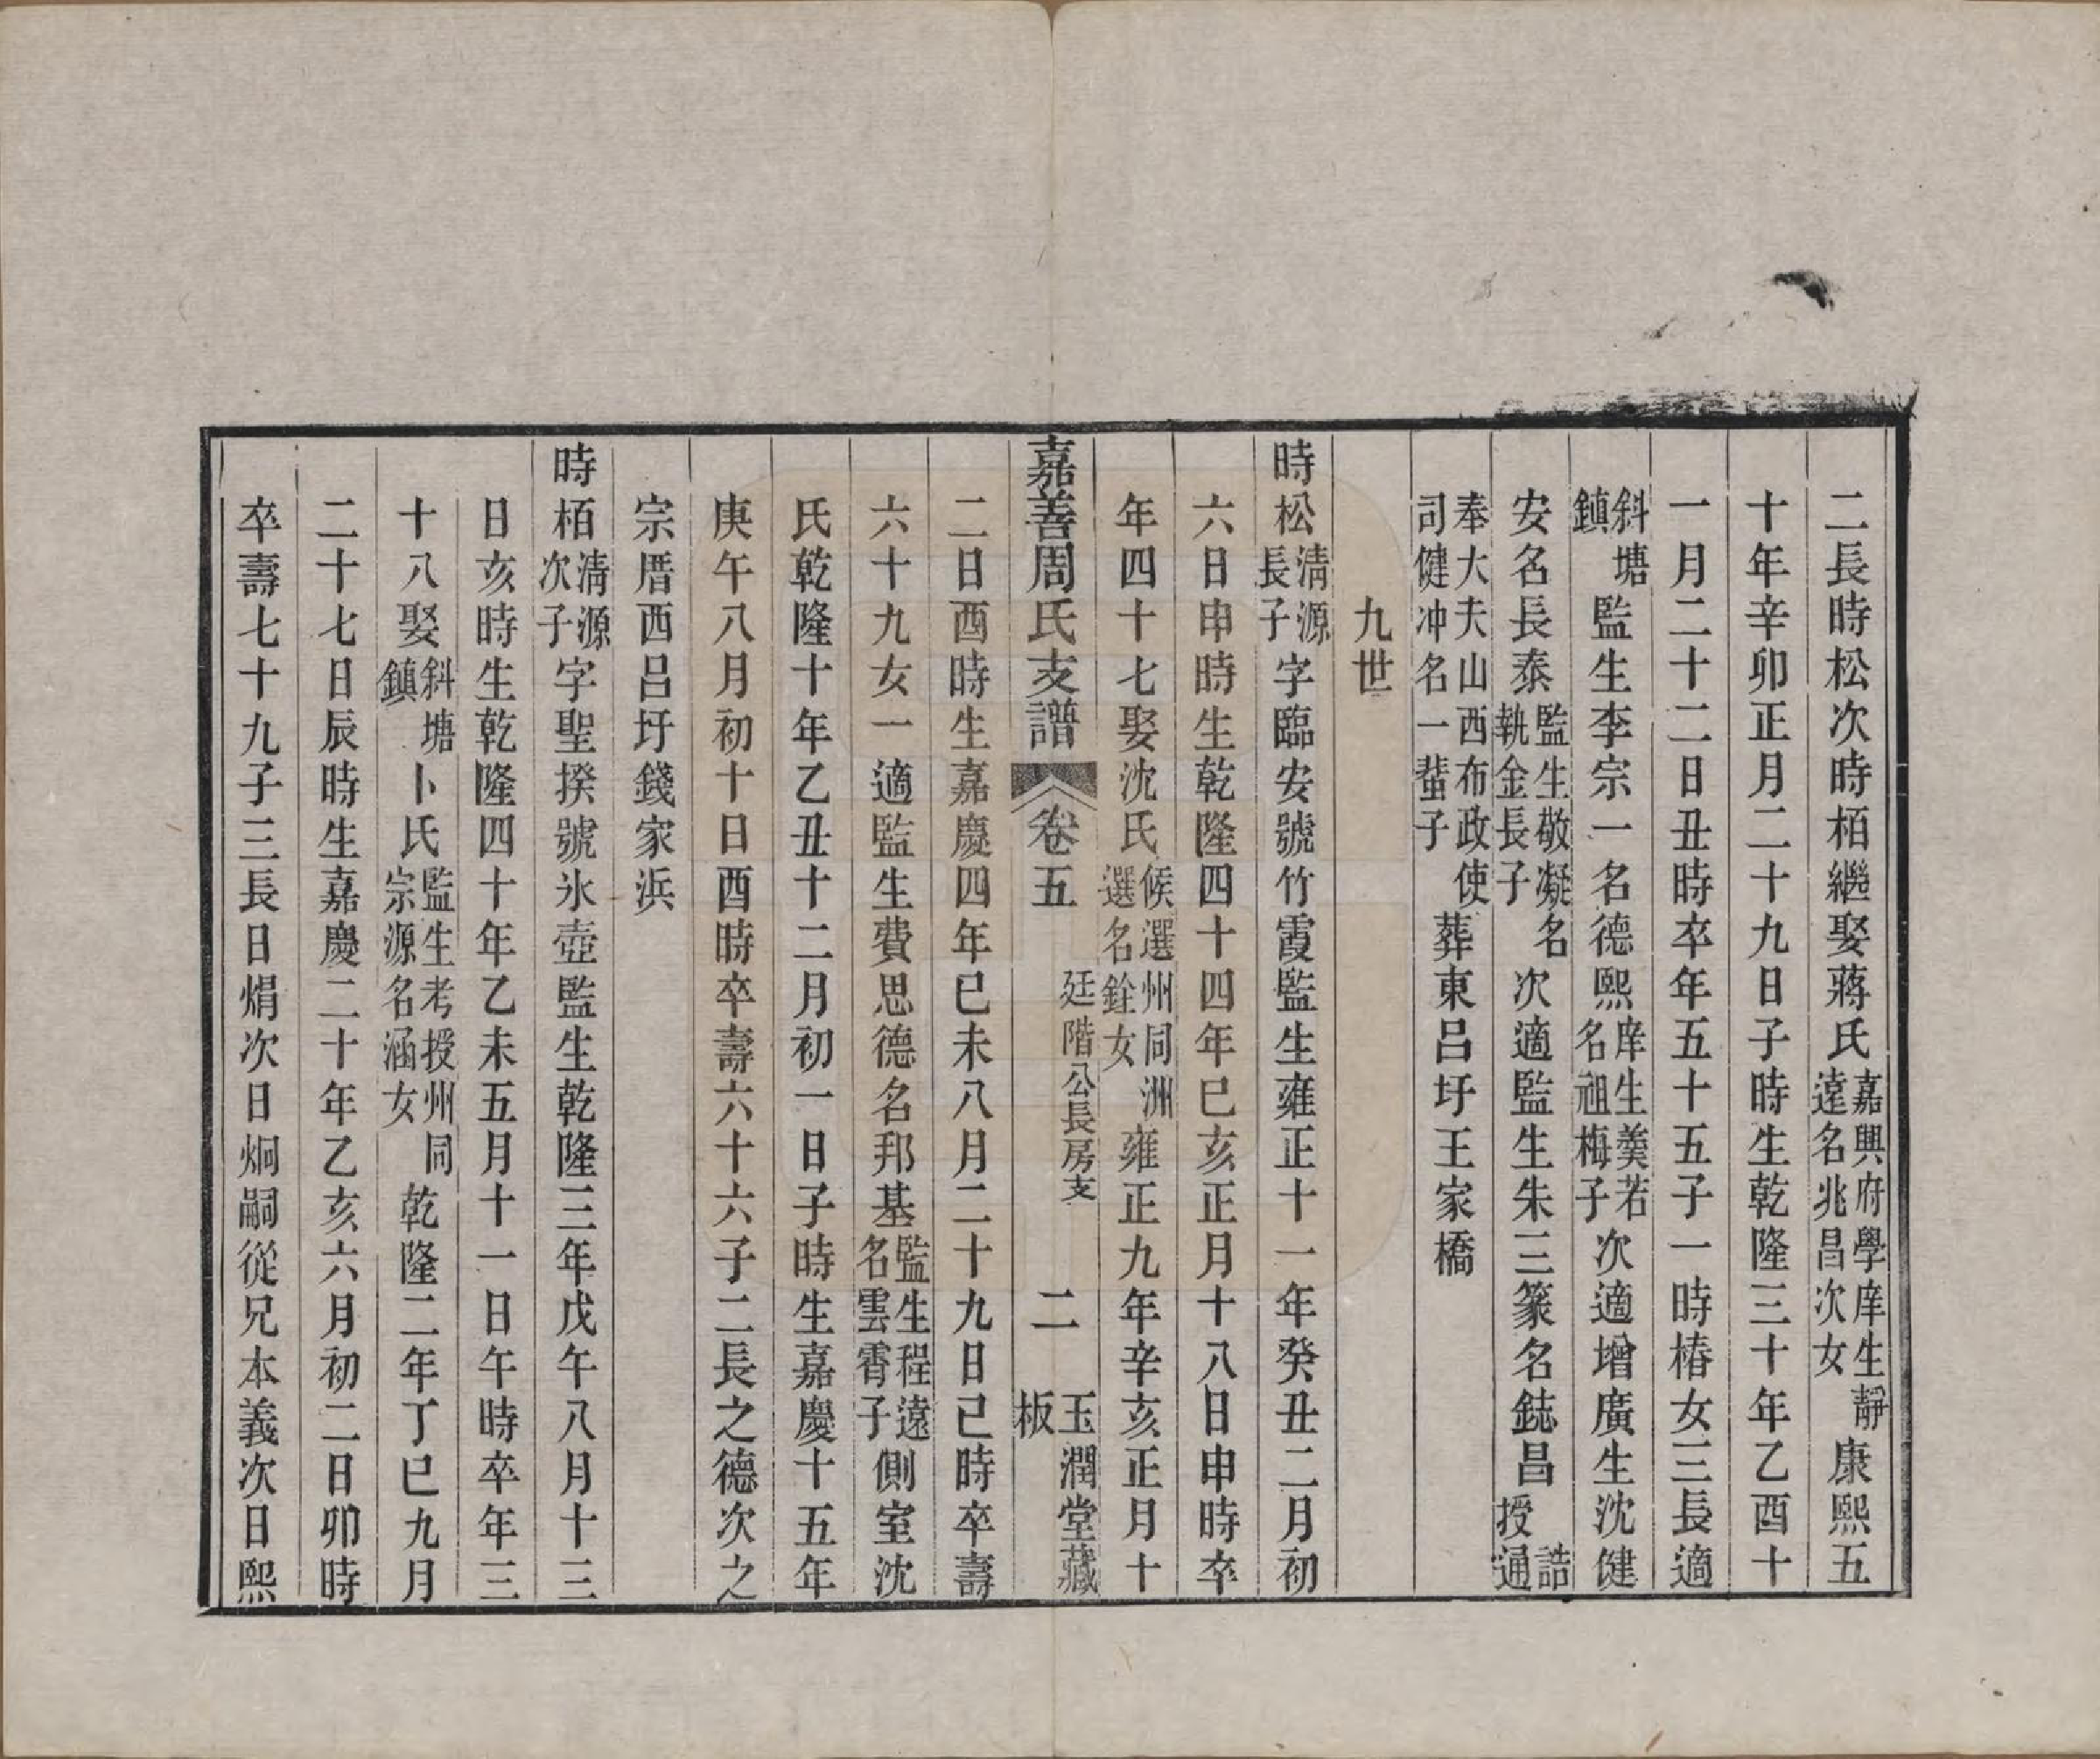 二長時松次時栢繼娶蔣氏嘉興府學庠生靜遠名兆昌次女康熙五
十年辛卯正月二十九日子時生乾隆三十年乙酉十
一月二十二日丑時卒年五十五子一時椿女三長適
斜塘鎮監生李宗一名德熙庠生羹若名祖梅子次適增廣生沈健
安名長泰監生敬凝名執金長子次適監生朱三篆名鋕昌誥授通
奉大夫山西布政使司健冲名一蜚子葬東呂圩王家橋
九世
時松清源長子字臨安號竹霞監生雍正十一年癸丑二月初
六日申時生乾隆四十四年己亥正月十八日申時卒
年四十七娶沈氏候選州同洲選名銓女雍正九年辛亥正月十
嘉善周氏支譜 卷五 廷階公長房支 二 玉潤堂藏板
二日酉時生嘉慶四年己未八月二十九日己時卒壽
六十九女一適監生費思德名邦基監生程遠名雲霄子側室沈
氏乾隆十年乙丑十二月初一日子時生嘉慶十五年
庚午八月初十日酉時卒壽六十六子二長之德次之
宗厝西呂圩錢家浜
時栢清源次子字聖揆號氷壺監生乾隆三年戊午八月十三
日亥時生乾隆四十年乙未五月十一日午時卒年三
十八娶斜塘鎮卜氏監生考授州同宗源名涵女乾隆二年丁巳九月
二十七日辰時生嘉慶二十年乙亥六月初二日卯時
卒壽七十九子三長日焆次日炯嗣從兄本義次日熙